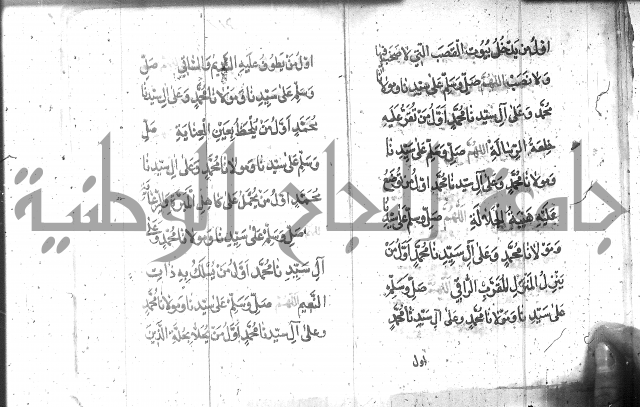 اوّل من يدخل بيوت القصب التي لا صخب فيها
ولا نصب اللهم صلّ وسلّم على سيّدنا ومولانا
محمّد وعلى آل سيّدنا محمّد اوّل من تفرغ عليه
خلعة الرسالة اللهم صلّ وسلّم على سيّدنا
ومولانا محمّد وعلى آل سيّدنا محمّد اوّل من
عليه هيبة الجلالة اللهم صلّ وسلّم على سيّدنا
ومولانا محمّد وعلى آل سيّدنا محمّد اوّل من
ينزل المنزل المقرّب الراقي اللهم صلّ وسلّم
على سيّدنا ومولانا محمّد وعلى آل سيّدنا محمّد
اول
اوّل من يطوف عليه النديم والساقي اللهم صلّ
وسلّم على سيّدنا ومولانا محمّد وعلى آل سيّدنا
محمّد اوّل من يلحظ بعين العناية اللهم صلّ
وسلّم على سيّدنا ومولانا محمّد وعلى آل سيّدنا
محمّد اوّل من يحمل على كاهل
اللهم صلّ وسلّم على سيّدنا ومولانا محمّد وعلى
آل سيّدنا محمّد اوّل من يسلك به ذات
النعيم اللهم صلّ وسلّم على سيّدنا ومولانا محمّد
وعلى آل سيّدنا محمّد اوّل من بحلة الذين
جامعة النجاح الوطنية